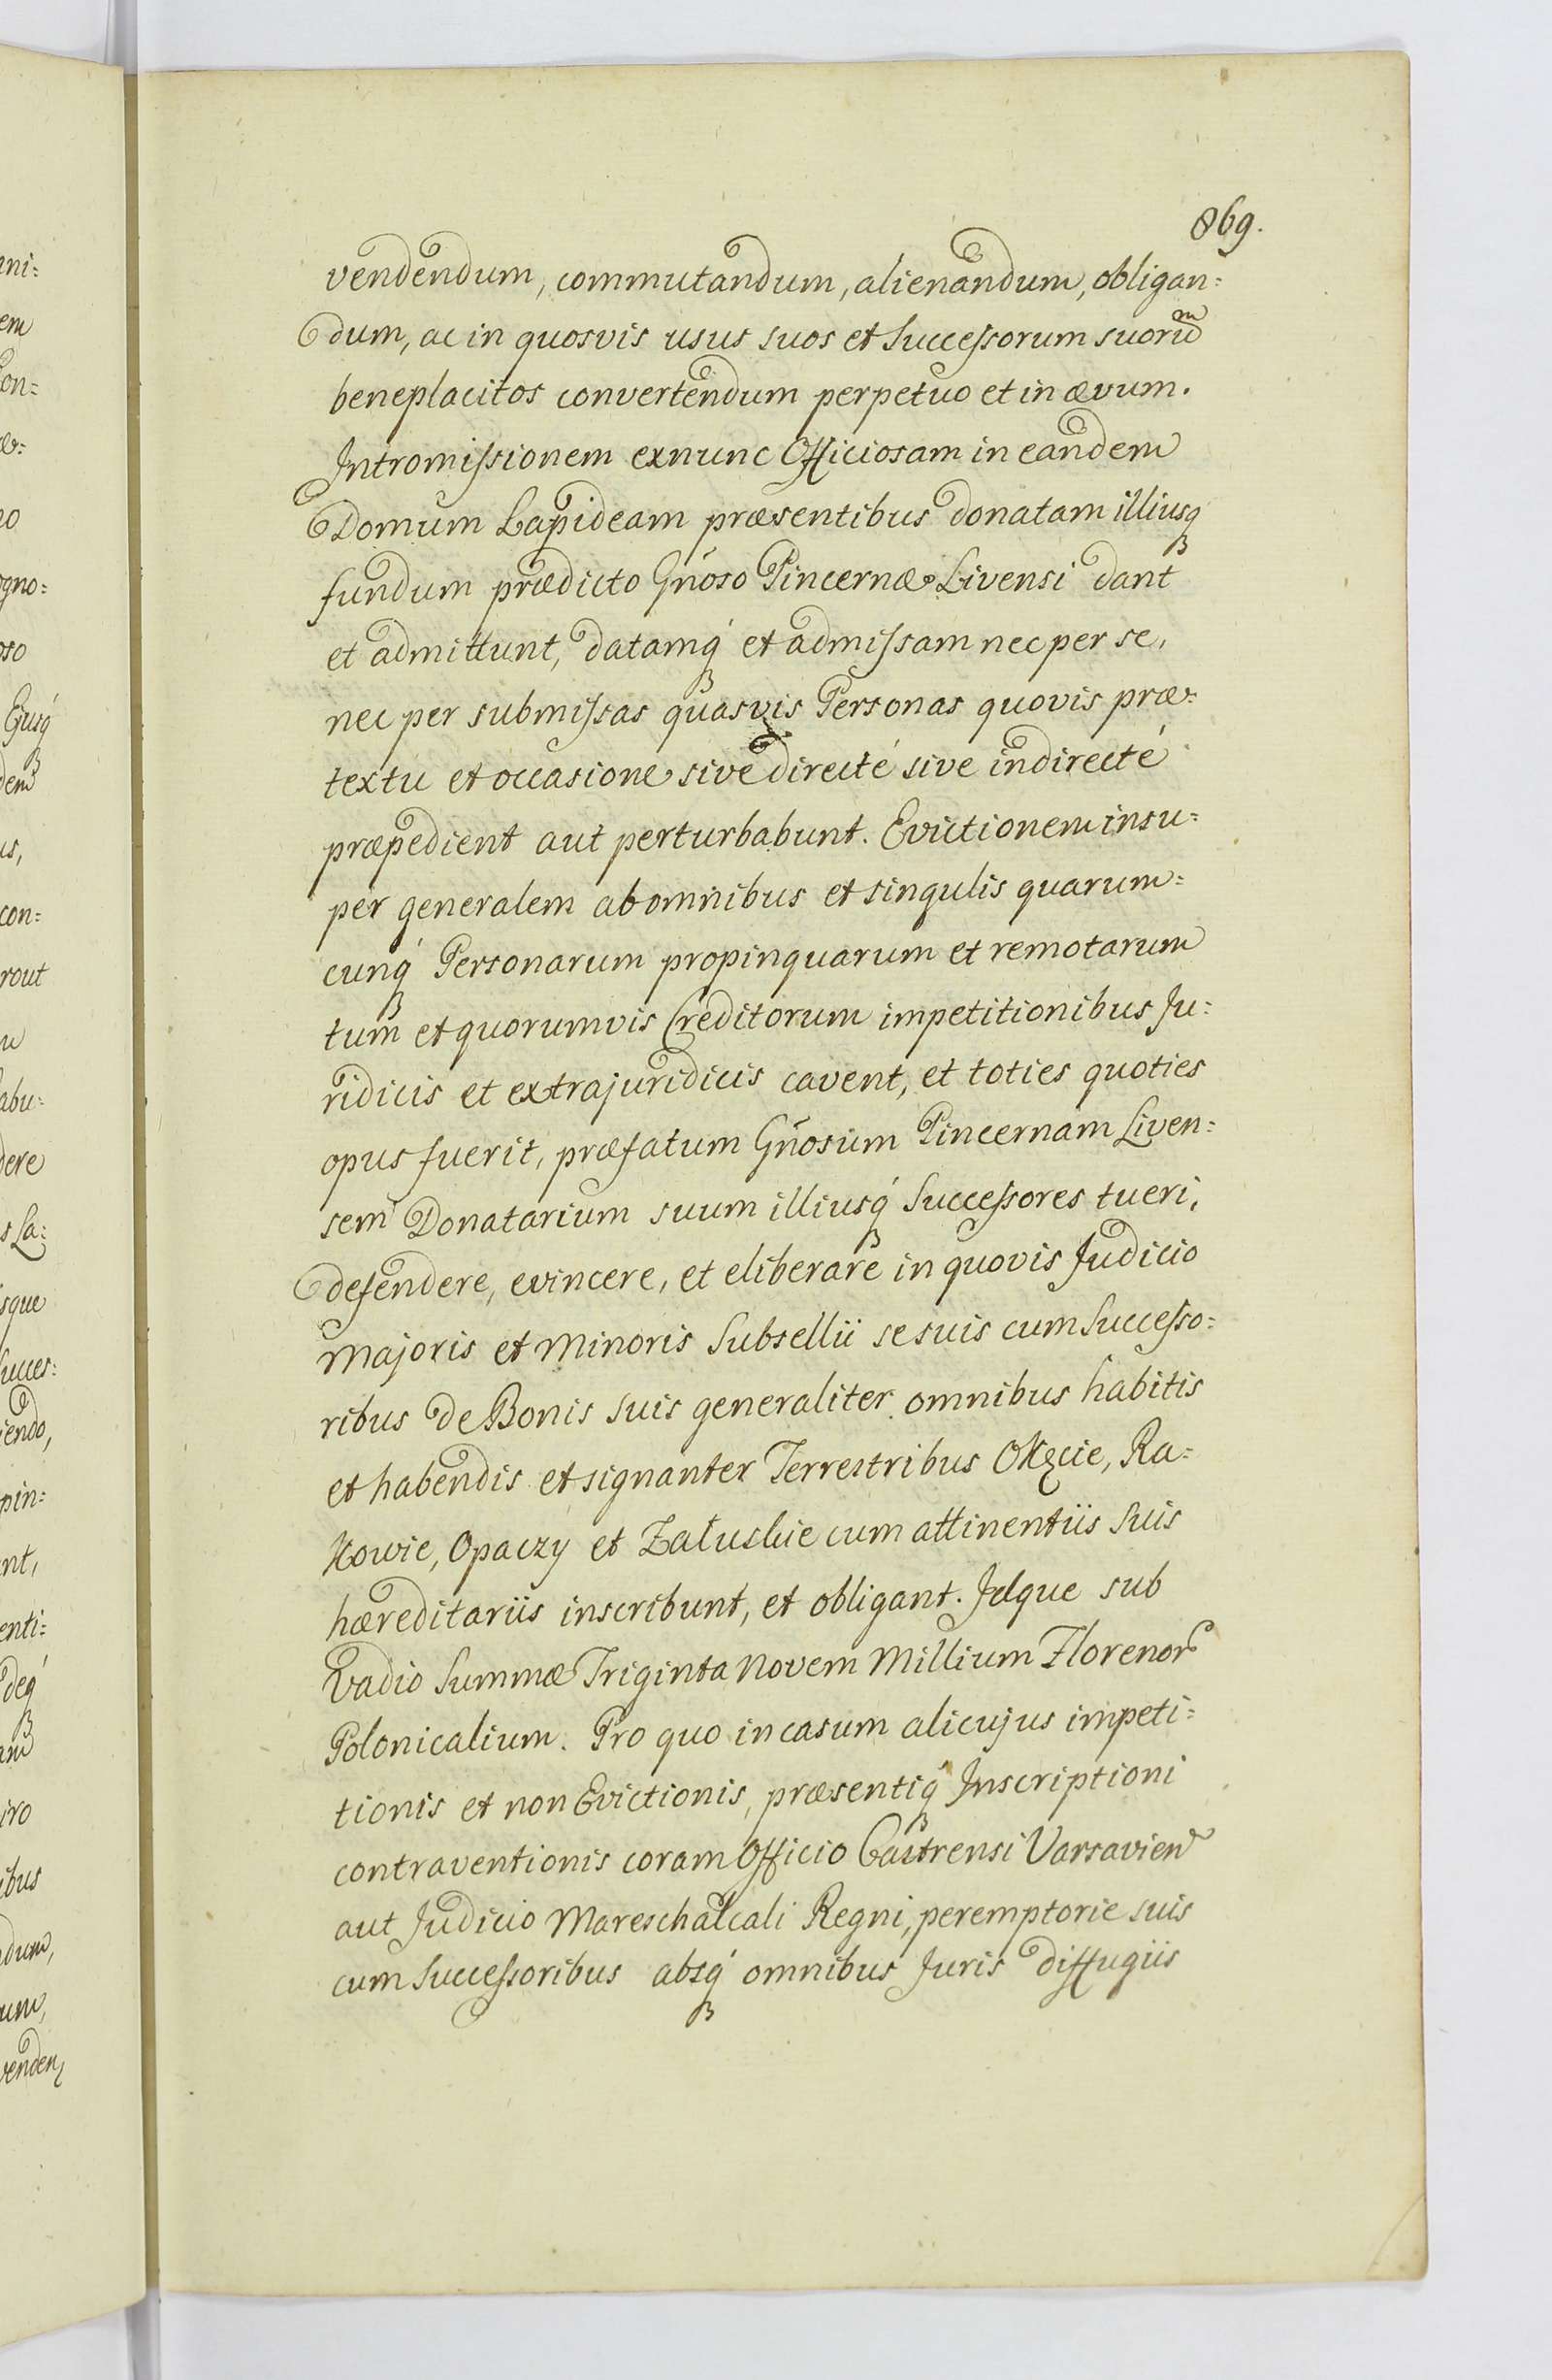 869.
vendendum, commutandum, alienandum, obligan=
dum, ac in quosvis usus suos et Successorum suorum
beneplacitos convertendum perpetuo et in ævum.
Intromissionem exnunc Officiosam in eandem
Domum Lapideam præsentibus donatam illiusq
fundum prædicto Gñoso Pincernæ Livensi dant
et admittunt, datamq́ et admissam nec per se,
nec per submissas quasvis Personas quovis præ=
textu et occasione sive directé sive indirecté
præpedient aut perturbabunt. Evictionem insu=
per generalem ab omnibus et singulis quarum=
cunq́ Personarum propinquarum et remotarum
tum et quorumvis Creditorum impetitionibus Ju=
ridicis et extrajuridicis cavent, et toties quoties
opus fuerit, præfatum Gñosum Pincernam Liven=
sem Donatarium suum illiusq́ Successores tueri,
defendere, evincere, et eliberare in quovis Judicio
Majoris et Minoris Subsellii se suis cum Successo=
ribus de Bonis suis generaliter omnibus habitis
et habendis et signanter Terrestribus Okęcie, Ra=
kowie, Opaczy et Załuskie cum attinentiis suis
hæreditariis inscribunt, et obligant. Idque sub
Vadio Summæ Triginta Novem Millium Florenor
Polonicalium. Pro quo in casum alicujus impeti=
tionis et non Evictionis, præsentiq́ Inscriptioni
contraventionis coram Officio Castrensi Varsavien
aut Judicio Mareschalcali Regni, peremptorie suis
cum Successoribus absq́ omnibus Juris diffugiis